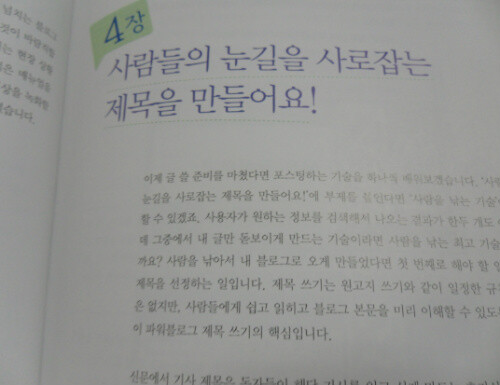 넘치는 블로그
것이 바람직합
는 현장 상황
은 매뉴얼을
상을 녹화할
습니다.
4장
사람들의 눈길을 사로잡는
제목을 만들어요!
이제 글 쓸 준비를 마쳤다면 포스팅하는 기술을 하나씩 배워보겠습니다. '사람
눈길을 사로잡는 제목을 만들어요!'에 부제를 붙인다면 '사람을 낚는 기술'
할 수 있겠죠. 사용자가 원하는 정보를 검색해서 나오는 결과가 한두 개도
데 그중에서 내 글만 돋보이게 만드는 기술이라면 사람을 낚는 최고 기술
까요? 사람을 낚아서 내 블로그로 오게 만들었다면 첫 번째로 해야 할 일
제목을 선정하는 일입니다. 제목 쓰기는 원고지 쓰기와 같이 일정한 규
은 없지만, 사람들에게 쉽고 읽히고 블로그 본문을 미리 이해할 수 있도
이 파워블로그 제목 쓰기의 핵심입니다.
신문에서 기사 제목은 독자들이 해당 기사를 읽고